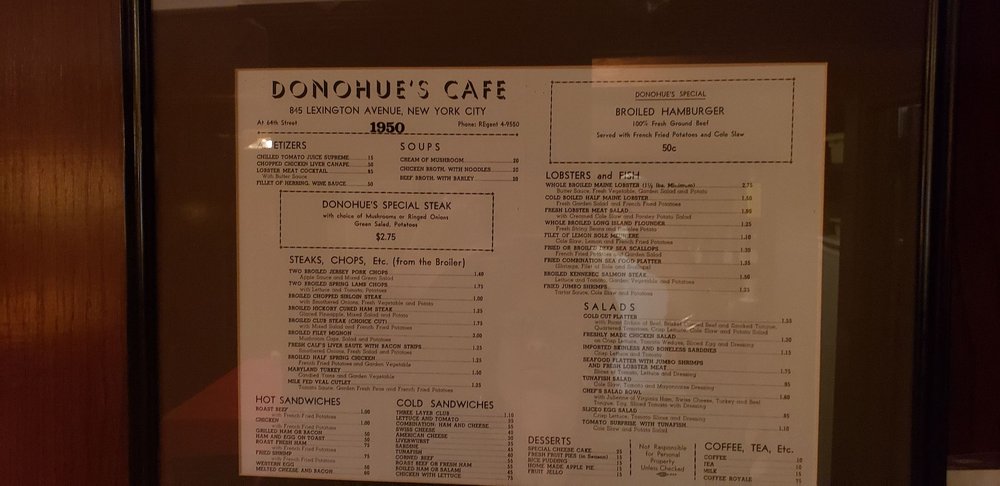 DONOHUE'S CAFE
845 LEXINGTON AVENUE, NEW YORK CITY
At 64th Street
Phone: REgent 4-9550
1950
CHILLED TOMATO JUICE SUPREME 15
CHOPPED CHICKEN LIVER CANAPE 50
LOBSTER MEAT COCKTAIL 85
With Butter Sauce
FILLET OF HERRING, WINE SAUCE 50
SOUPS
CREAM OF MUSHROOM 20
CHICKEN BROTH, WITH NOODLES 20
BEEF BROTH, WITH BARLEY 20
DONOHUE'S SPECIAL STEAK
with choice of Mushrooms or Ringed Onions
Green Salad, Potatoes
$2.75
STEAKS, CHOPS, Etc. (from the Broiler)
TWO BROILED JERSEY PORK CHOPS 1.60
Apple Sauce and Mixed Green Salad
TWO BROILED SPRING LAMB CHOPS 1.75
with Lettuce and Tomato, Potatoes
BROILED CHOPPED SIRLOIN STEAK 1.00
with Smothered Onions, Fresh Vegetable and Potato
BROILED HICKORY CURED HAM STEAK 1.25
Glazed Pineapple, Mixed Salad and Potato
BROILED CLUB STEAK (CHOICE CUT) 1.75
with Mixed Salad and French Fried Potatoes
BROILED FILET MIGNON
Mushroom Caps, Salad and Potatoes
FRESH CALF'S LIVER SAUTE WITH BACON STRIPS 1.25
Smothered Onions, Fresh Salad and Potatoes
BROILED HALF SPRING CHICKEN 1.25
French Fried Potatoes and Garden Vegetable
MARYLAND TURKEY
Candied Yams and Garden Vegetable
MILK FED VEAL CUTLET 1.25
Tomato Sauce, Garden Fresh Peas and French Fried Potatoes
HOT SANDWICHES
ROAST BEEF 1.00
with French Fried Potatoes
CHICKEN 1.00
with French Fried Potatoes
GRILLED HAM OR BACON 50
HAM AND EGG ON TOAST 50
ROAST FRESH HAM 75
with French Fried Potatoes
FRIED SHRIMP 75
with French Fried Potatoes
WESTERN EGG 50
MELTED CHEESE AND BACON 60
COLD SANDWICHES
THREE LAYER CLUB 1.10
LETTUCE AND TOMATO
COMBINATION: HAM AND CHEESE
SWISS CHEESE
AMERICAN CHEESE
LIVERWURST
SARDINE
TUNAFISH
CORNED BEEF
ROAST BEEF OR FRESH HAM
BOILED HAM OR SALAMI
CHICKEN WITH LETTUCE 75
DONOHUE'S SPECIAL
BROILED HAMBURGER
100% Fresh Ground Beef
Served with French Fried Potatoes and Cole Slaw
50c
LOBSTERS and FISH
WHOLE BROILED MAINE LOBSTER (1½ lbs. Minimum) 2.75
Butter Sauce, Fresh Vegetable, Garden Salad and Potato
COLD BOILED HALF MAINE LOBSTER 1.50
Fresh Garden Salad and French Fried Potatoes
FRESH LOBSTER MEAT SALAD
with Creamed Cole Slaw and Parsley Potato Salad
WHOLE BROILED LONG ISLAND FLOUNDER 1.25
FILET OF LEMON SOLE MEUNIERE 1.10
Cole Slaw, Lemon and French Fried Potatoes
FRIED OR BROILED DEEP SEA SCALLOPS
French Fried Potatoes and Garden Salad
FRIED COMBINATION SEA FOOD PLATTER 1.35
BROILED KENNEBEC SALMON STEAK
Lettuce and Tomato, Garden Vegetable and Potatoes
FRIED JUMBO SHRIMPS
Tartar Sauce, Cole Slaw and Potatoes
SALADS
COLD CUT PLATTER
FRESHLY MADE CHICKEN SALAD
on Crisp Lettuce, Tomato Wedges, Sliced Egg and Dressing
IMPORTED SKINLESS AND BONELESS SARDINES 1.15
Crisp Lettuce and Tomato
SEAFOOD PLATTER WITH JUMBO SHRIMPS
AND FRESH LOBSTER MEAT 1.75
Sliced Tomato, Lettuce and Dressing
TUNAFISH SALAD
Cole Slaw, Tomato and Mayonnaise Dressing
CHEF'S SALAD BOWL
with Julienne of Virginia Ham, Swiss Cheese, Turkey and Beef
Tongue, Egg, Sliced Tomato with Dressing
SLICED EGG SALAD
Crisp Lettuce, Tomato Slices and Dressing
TOMATO SURPRISE WITH TUNAFISH 1.10
Cole Slaw and Potato Salad
DESSERTS
SPECIAL CHEESE CAKE
FRESH FRUIT PIES (in Season)
RICE PUDDING
HOME MADE APPLE PIE
FRUIT JELLO
Not Responsible
for Personal
Property
Unless Checked
COFFEE, TEA, Etc.
COFFEE 10
TEA
MILK
COFFEE ROYALE